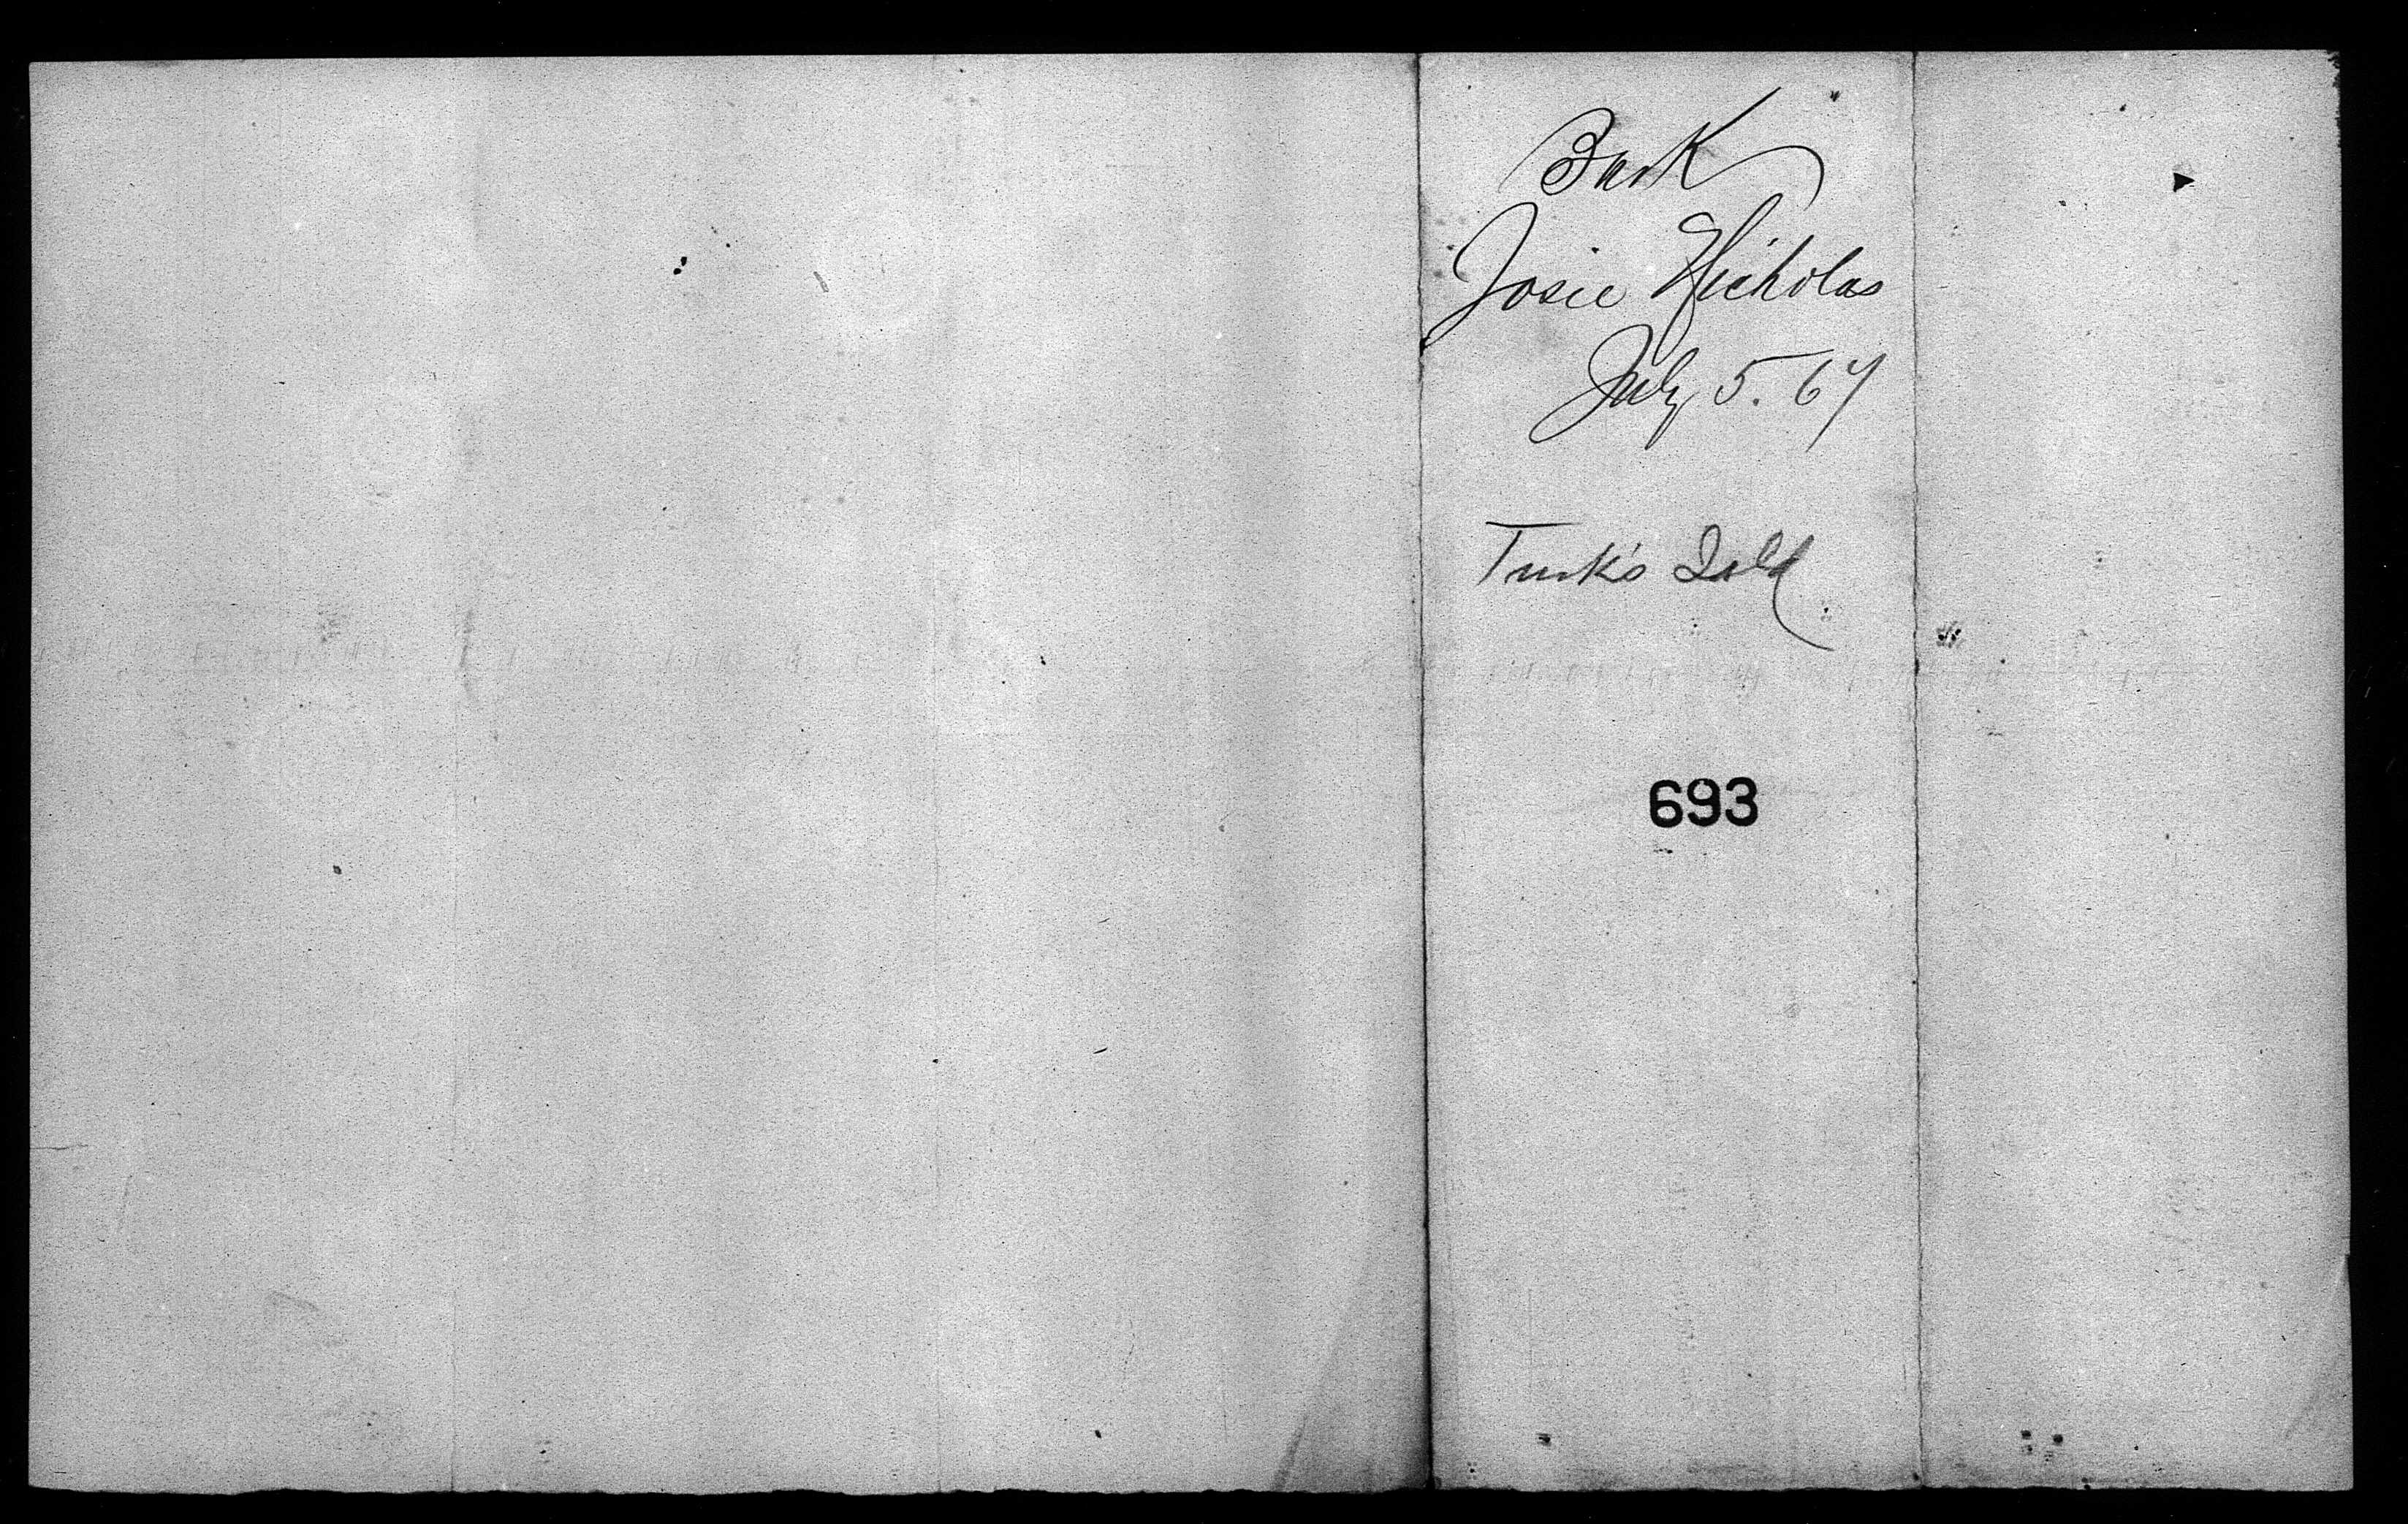 Bark
Josie Nicholas
July 5. 67
Turk's Isld
693